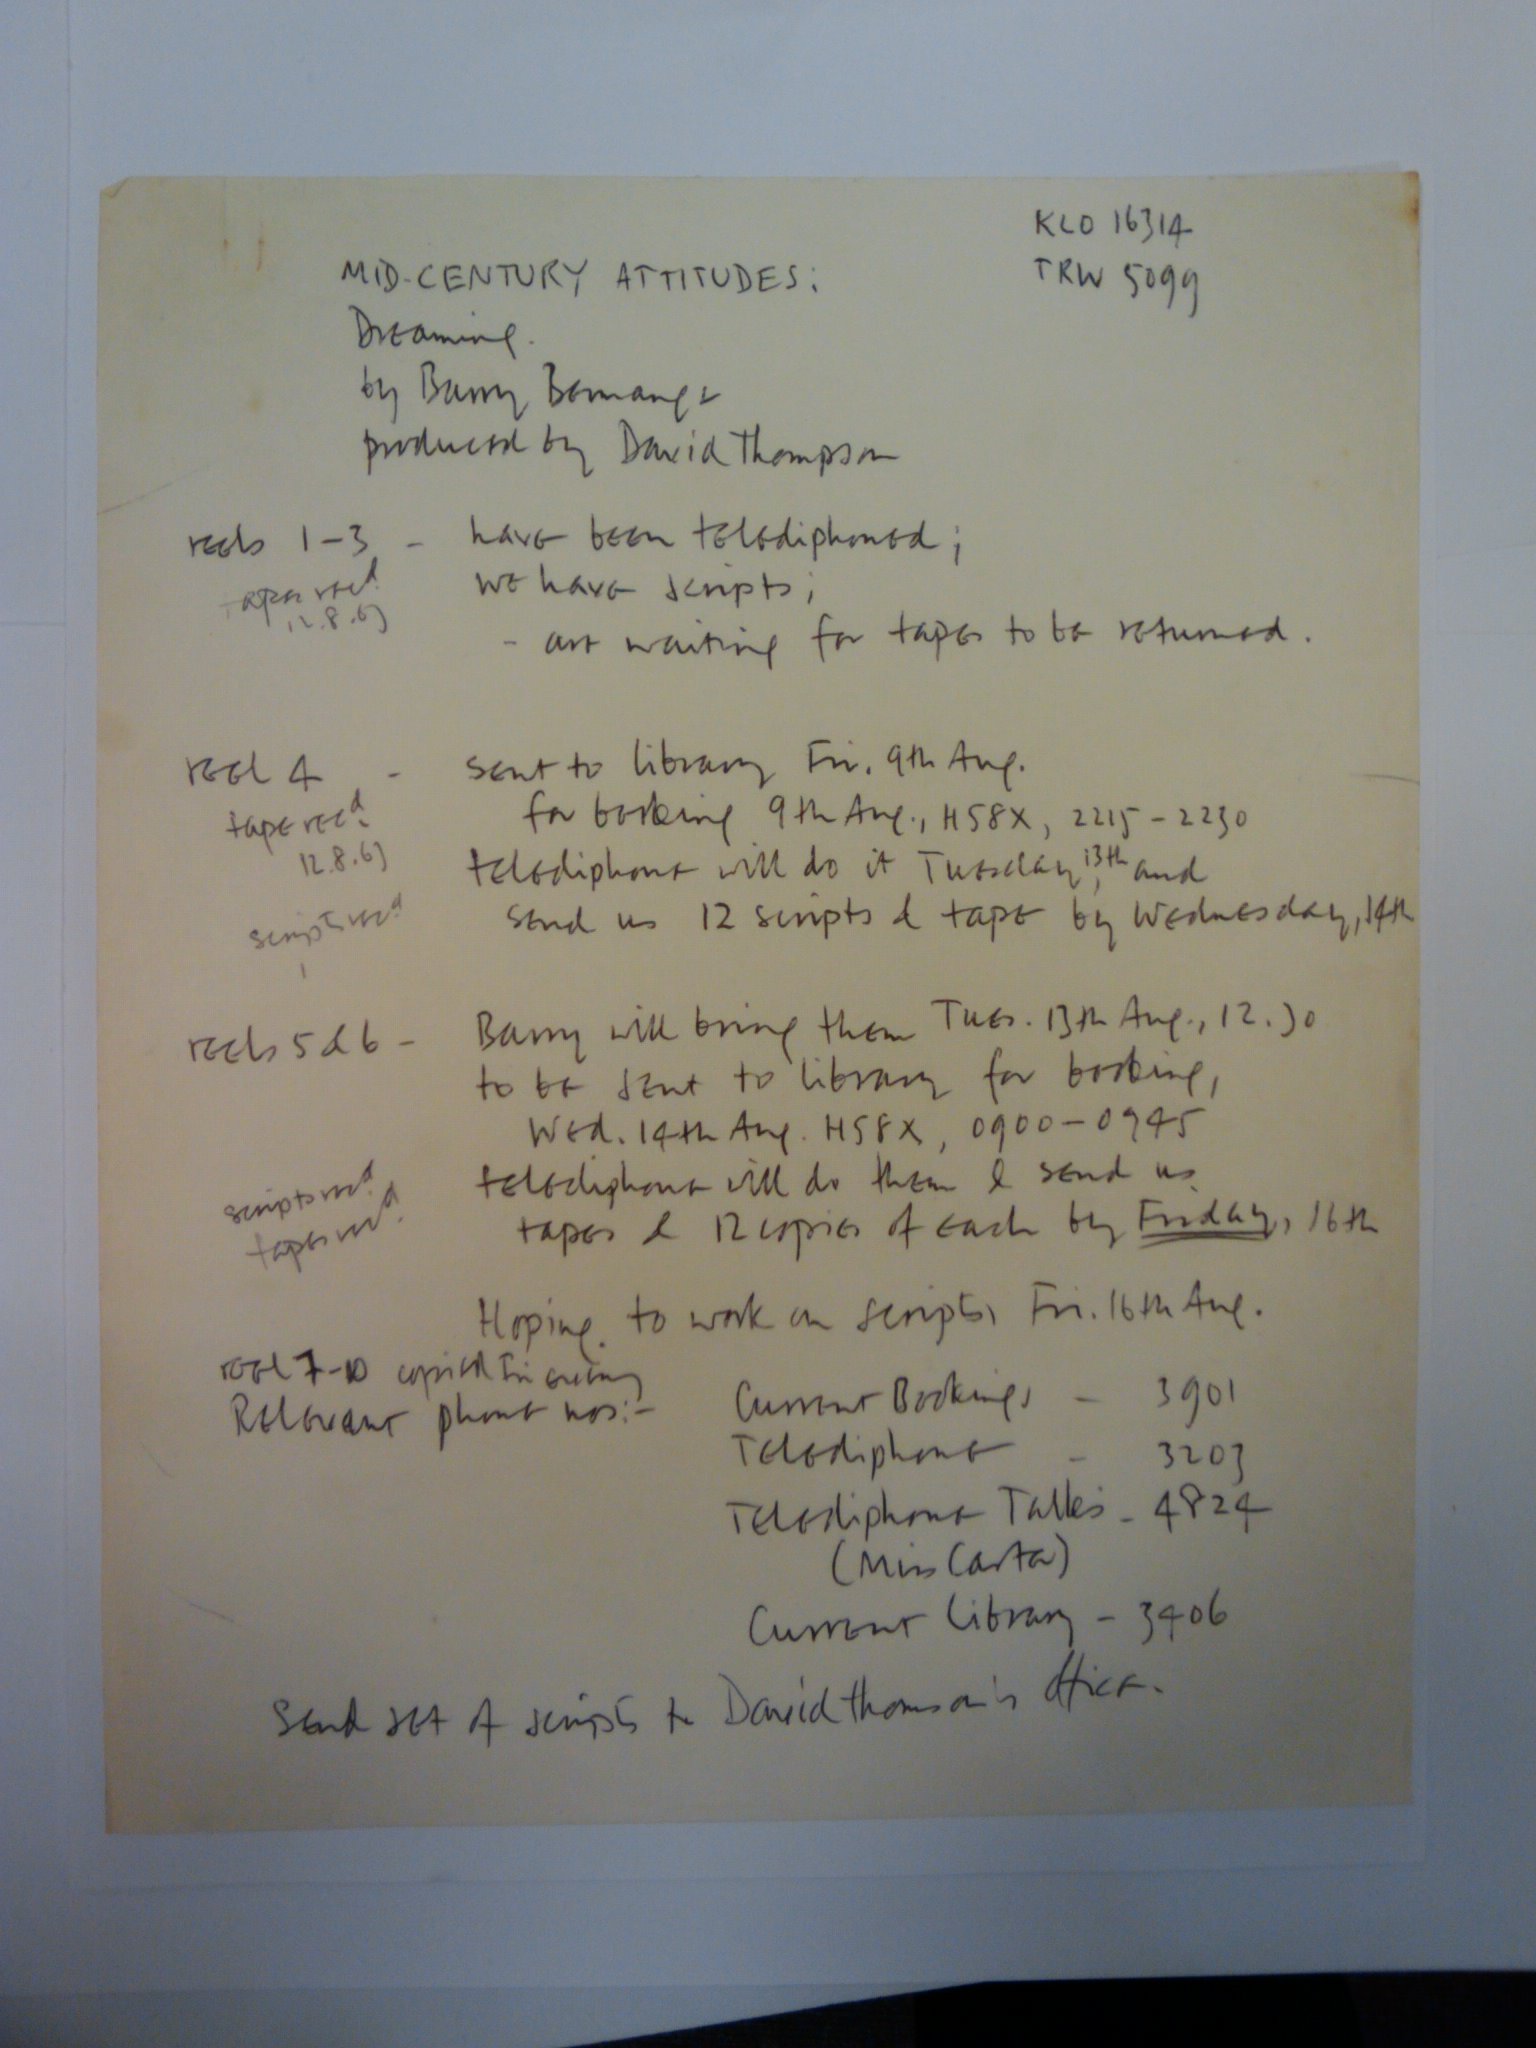 KLO 16314
TRW 5099
MID-CENTURY ATTITUDES:
Dreaming.
by Barry Bermange
produced by David Thompson
reels 1-3 - have been telediphoned;
tapes recd.
12.8.63
we have scripts;
- are waiting for tapes to be returned.
reel 4 - sent to library Fri. 9th Aug.
for booking 9th Aug., H58X, 2215-2230
tape recd.
12.8.63
telediphone will do it Tuesday, 13th and
send us 12 scripts & tape by Wednesday, 14th
scripts recd
reels 5 & 6 - Barry will bring them Tues. 13th Aug., 12.30
to be sent to library for booking,
Wed. 14th Aug. H58X, 0900-0945
telediphone will do them & send us
tapes & 12 copies of each by Friday, 16th
scripts recd.
tapes recd.
Hoping to work on scripts, Fri. 16th Aug.
reel 7-10 copied Fri evening
Relevant phone nos:-
Current Bookings - 3901
Telediphone - 3203
Telediphone Talks - 4824
(Miss Carter)
Current Library - 3406
Send set of scripts to David Thomson's office.